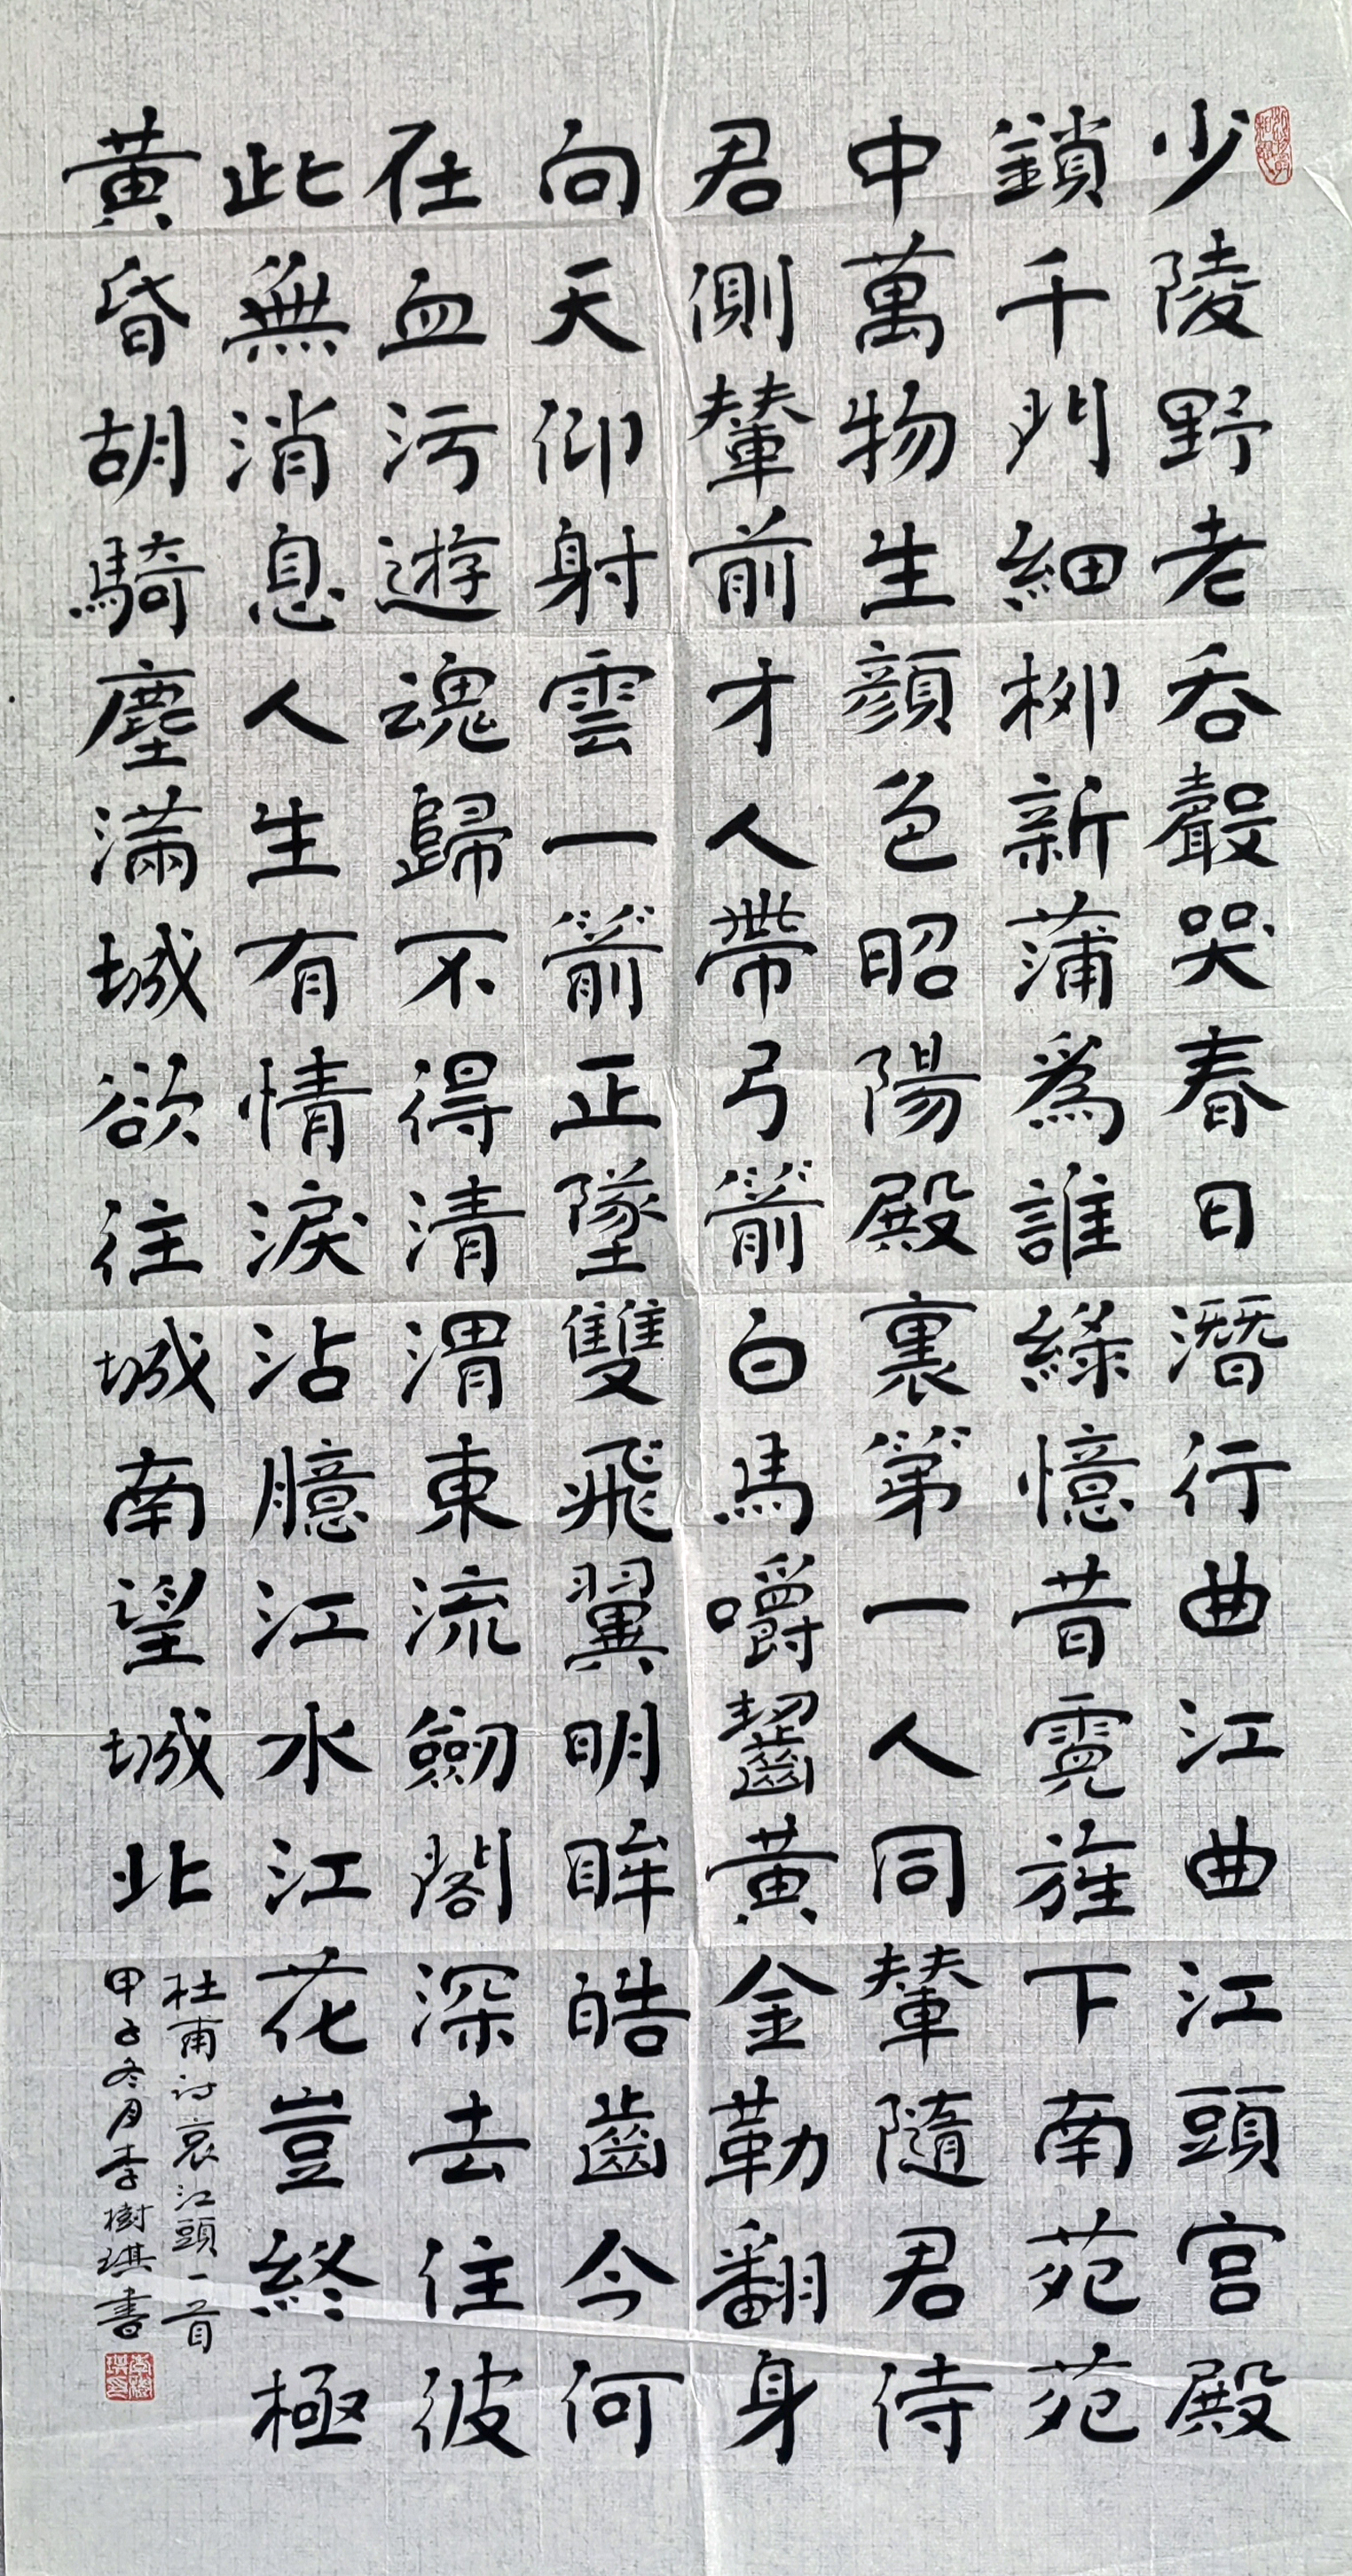 少陵野老吞聲哭春日潛行曲江曲江頭宮殿
鎖千門細柳新蒲爲誰綠憶昔霓旌下南苑苑
中萬物生顏色昭陽殿裏第一人同輦隨君侍
君側輦前才人帶弓箭白馬嚼齧黃金勒翻身
向天仰射雲一箭正墜雙飛翼明眸皓齒今何
在血污遊魂歸不得清渭東流劒閣深去住彼
此無消息人生有情淚沾臆江水江花豈終極
黃昏胡騎塵滿城欲往城南望城北
杜甫詩哀江頭一首
甲子冬月李樹琪書